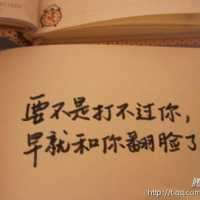 要不是打不过你，
早就和你翻脸了
http://t.qq.com/